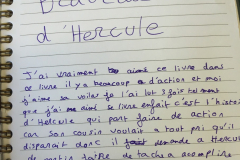 d'Hercule
J'ai vraiment aimé ce livre dans
ce livre il y a beaucoup d'action et moi
j'aime sa voiler je l'ai lot 3 fois
que j'ai aimé ce livre enfait c'est l'histoi
d'Hercule qui part faire de action
car son cousin voulair a tout pri qu'il
disparait donc il demande a Hercule
de partir faire de taches accomplire